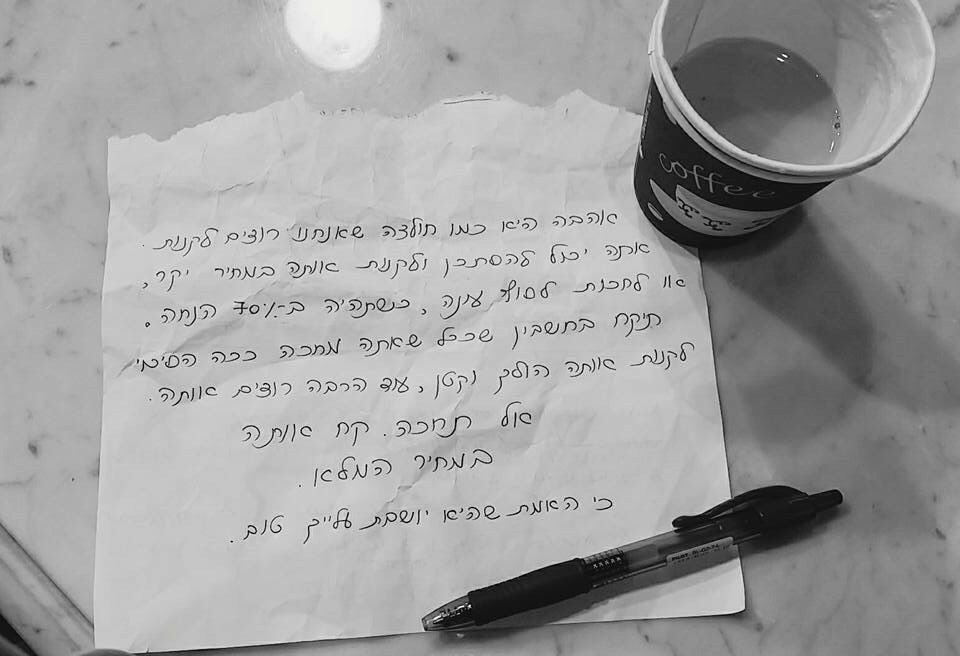 אהבה היא כמו חולצה שאנחנו רוצים לקנות.
אתה יכול להסתכן ולקנות אותה במחיר יקר,
או לחכות לסוף עונה, כשתהיה ב-70% הנחה.
תיקח בחשבון שככל שאתה מחכה ככה הסיכוי
לקנות אותה הולך וקטן, עוד הרבה רוצים אותה.
אל תחכה. קח אותה
במחיר המלא.
כי האמת שהיא יושבת עלייך טוב.
coffee
PILOT